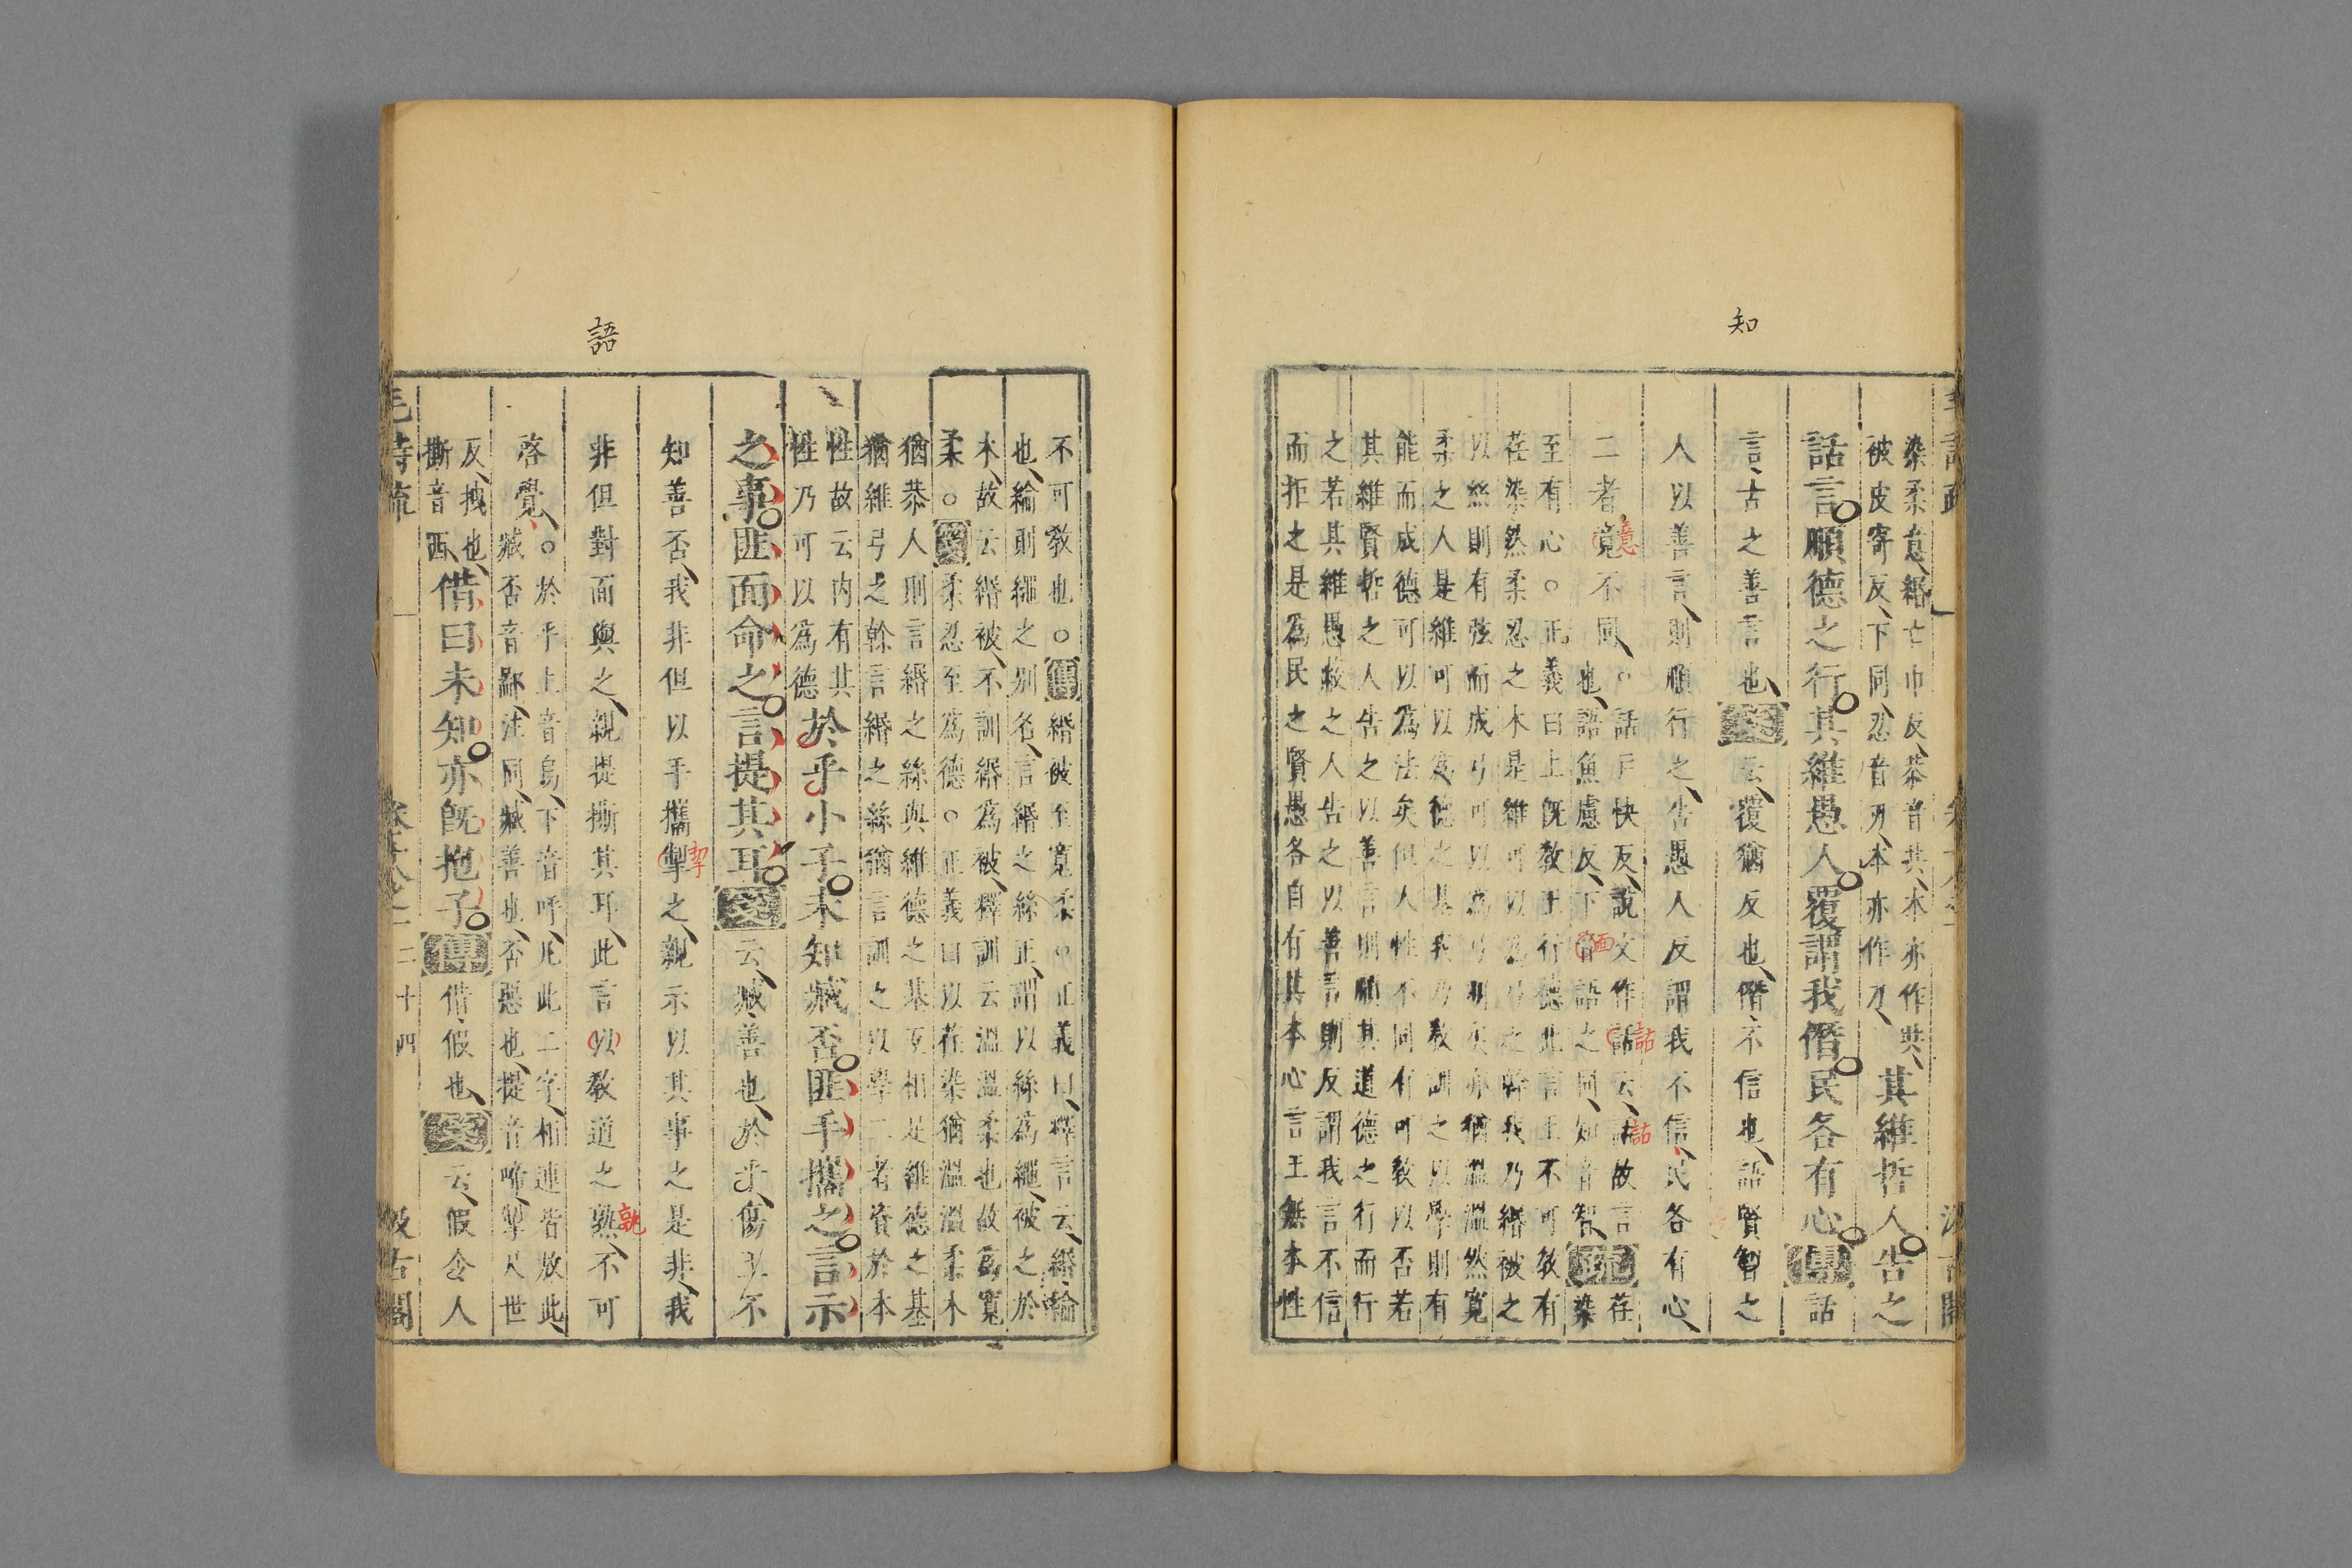 知
染柔意緡亡巾反恭音共本亦作共
被皮寄反下同忍音刃本亦作刃
其維哲人告之
話言順德之行其維愚人覆謂我僭民各有心傳話
言古之善言也箋云覆猶反也僭不信也語賢智之
人以善言則順行之告愚人反謂我不信民各有心
二者竟不同
意
也。話戶快反說文作話云話故言
詁
詁
也語魚慮反下
面
語之同知音智疏荏染
至有心。正義曰上旣敎王行德此言王不可敎有
荏染然柔忍之木是維可以爲弓之幹我乃緡被之
以絲則有弦而成弓可以爲弓明矣亦猶溫溫然寬
柔之人是維可以爲德之基我乃敎訓之以學則有
能而成德可以爲法矣但人性不同有可敎以否若
其維賢哲之人告之以善言則順其道德之行而行
之若其維愚蔽之人告之以善言則反謂我言不信
而拒之是爲民之賢愚各自有其本心言王無本性
語
不可敎也。傳緡被至寬柔。正義曰釋言云緡綸
也綸則繩之別名言緡之絲正謂以絲爲繩被之於
木故云緡被不訓緡爲被釋訓云溫溫柔也故爲寬
柔。箋柔忍至爲德。正義曰以荏染猶溫溫柔木
猶恭人則言緡之絲與維德之基互相足維德之基
猶維弓之幹言緡之絲猶言訓之以學二者資於本
性故云内有其
性乃可以爲德
於乎小子未知臧否匪手攜之言示
之事匪面命之言提其耳箋云臧善也於乎傷王不
知善否我非但以手攜掣之親示以其事之是非我
挈
非但對面與之親提撕其耳此言以敎道之熟不可
孰
啓覺。於乎上音烏下音呼凡此二字相連皆放此
臧否音鄙注同臧善也否惡也提音啼掣尺世
反拽也
撕音西
借曰未知亦旣抱子傳借假也箋云假令人
毛詩疏
二十四
汲古閣